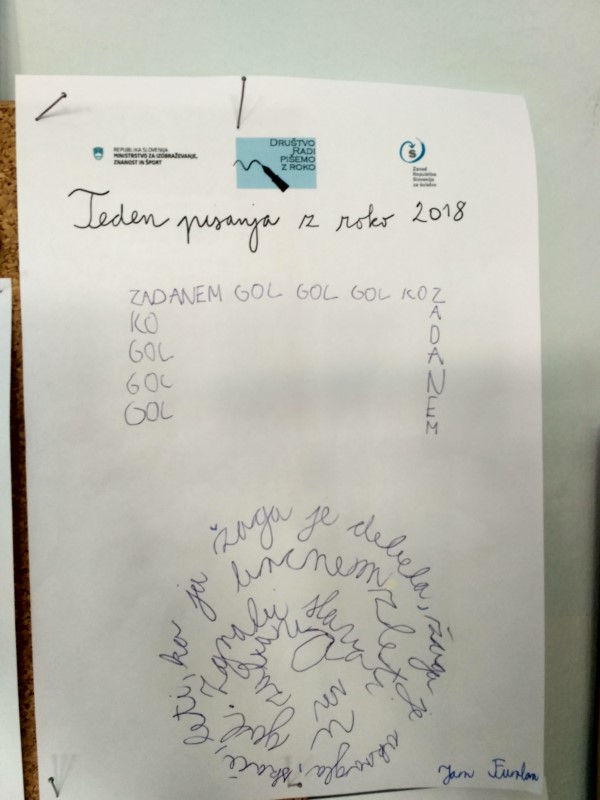 REPUBLIKA SLOVENIJA
MINISTRSTVO ZA IZOBRAŽEVANJE,
ZNANOST IN ŠPORT
DRUŠTVO
RADI
PIŠEMO
Z ROKO
Zavod
Republike
Slovenije
za šolstvo
Teden pisanja z roko 2018
ZADANEM GOL GOL GOL KO Z
A
D
A
N
E
M
KO
GOL
GOL
GOL
žoga je debela, žoga je okrogla, skače, leti, ko jo brcnem, zleti
gol.
Jan Furlan